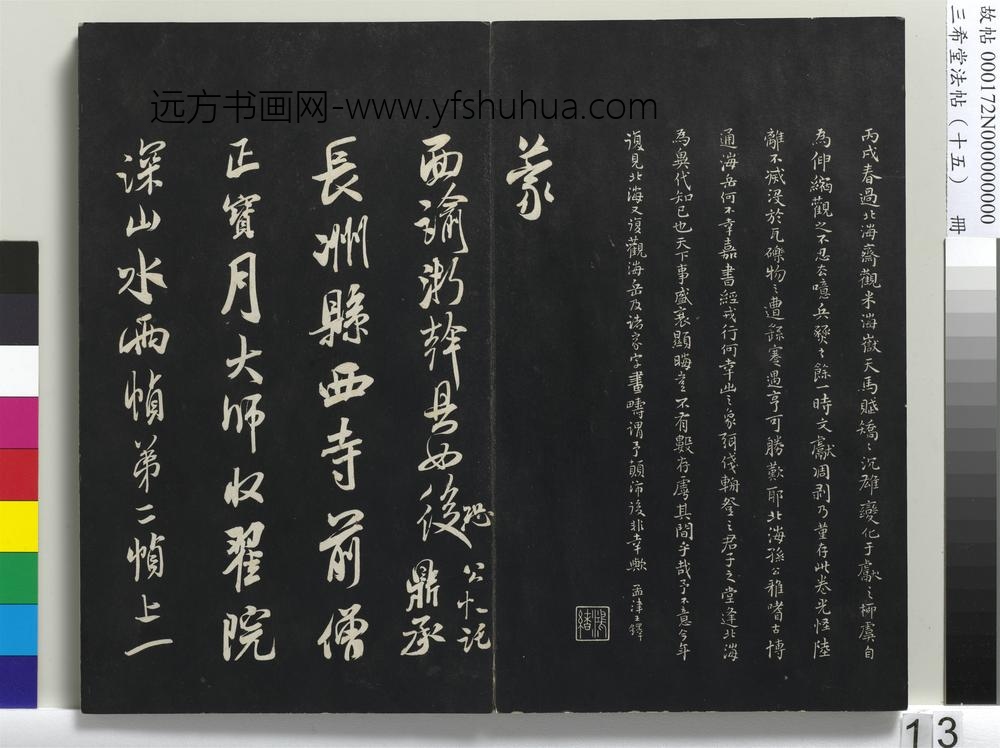 故帖 000172N000000000
三希堂法帖（十五） 冊
远方书画网-www.yfshuhua.com
丙戌春過北海齋觀米海嶽天馬賦矯〻沉雄變化于獻之柳虞自
為仰縮觀之不忍去噫兵發之餘一時文獻凋剥乃菫存此卷光怪陸
離不减浸於瓦礫物之遭錄蹇遇亨可勝歎耶北海孫公雅嗜古博
通海岳何不幸嘉書經戎行何幸出之象弭伐輈登之君子之堂逢北海
為異代知己也天下事盛衰顯晦豈不有數存處其間乎哉予不意今年
復見北海又復觀海岳及諸家字畫疇謂予顛沛後非幸歟 孟津王鐸
鴻緒
芾
西諭浙幹具如後
恐公忙託
鼎承
長洲縣西寺前僧
正寶月大師收翟院
深山水兩幀第二幀上一
13